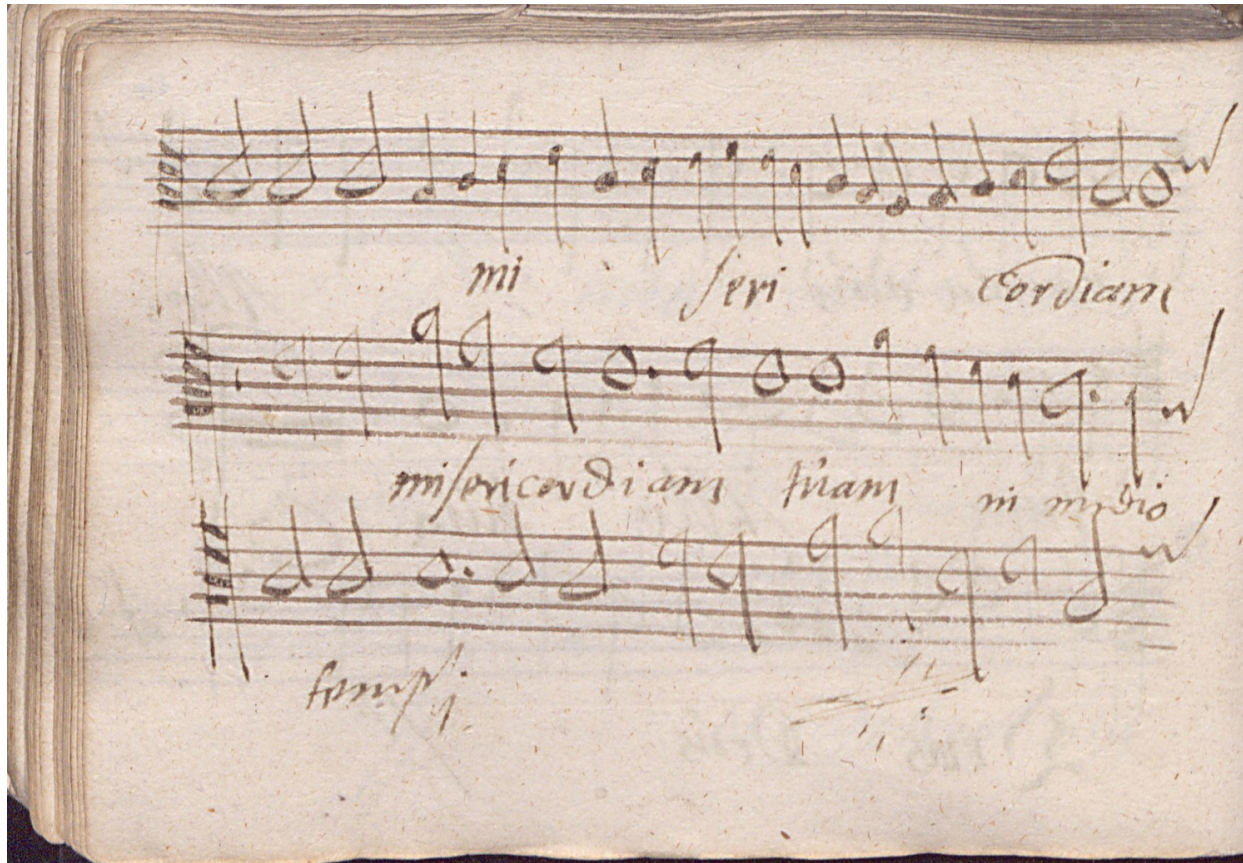 mi seri cordiam
misericordiam tuam in medio
templj